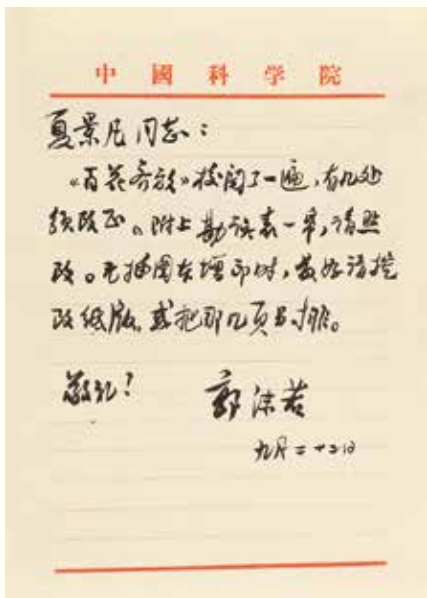 中國科学院
夏景凡同志：
《百花齐放》校阅了一遍，有几处
须改正。附上勘误表一单，请照
改。无插图本增印时，最好请挖
改纸版，或把那几页另排。
敬礼！
郭沫若
九月二十二日